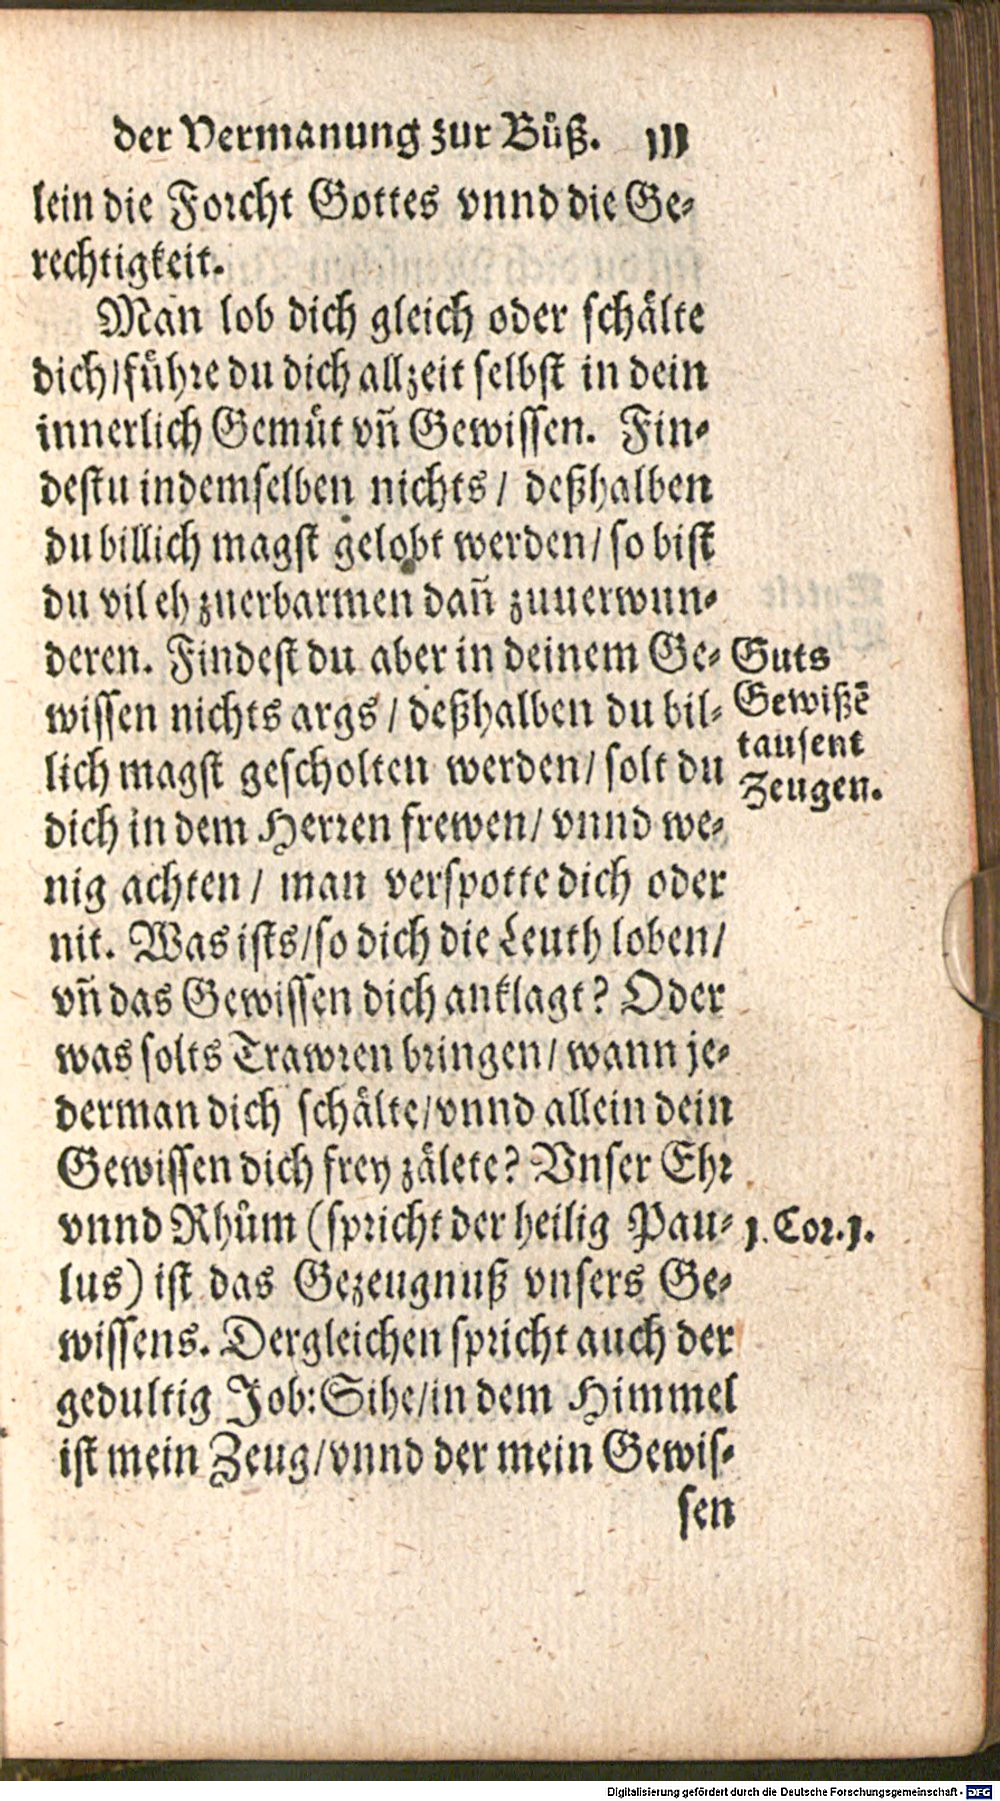 der Vermanung zur Bůß. III
lein die Forcht Gottes vnnd die Ge-
rechtigkeit.
Man lob dich gleich oder schålte
dich/fůhre du dich allzeit selbst in dein
innerlich Gemůt vñ Gewissen. Fin-
destu indemselben nichts/ deßhalben
du billich magst gelobt werden/ so bist
du vil eh zuerbarmen dañ zuuerwun-
deren. Findest du aber in deinem Ge-
wissen nichts args/ deßhalben du bil-
lich magst gescholten werden/ solt du
dich in dem Herren frewen/ vnnd we-
nig achten/ man verspotte dich oder
nit. Was ists/so dich die Leuth loben/
vñ das Gewissen dich anklagt? Oder
was solts Trawren bringen/ wann je-
derman dich schålte/vnnd allein dein
Gewissen dich frey zålete? Vnser Ehr
vnnd Rhům (spricht der heilig Pau-
lus) ist das Gezeugnuß vnsers Ge-
wissens. Dergleichen spricht auch der
gedultig Job: Sihe/in dem Himmel
ist mein Zeug/vnnd der mein Gewis-
sen
Guts
Gewißē
tausent
Zeugen.
1. Cor.1.
Digitalisierung gefördert durch die Deutsche Forschungsgemeinschaft - DFG